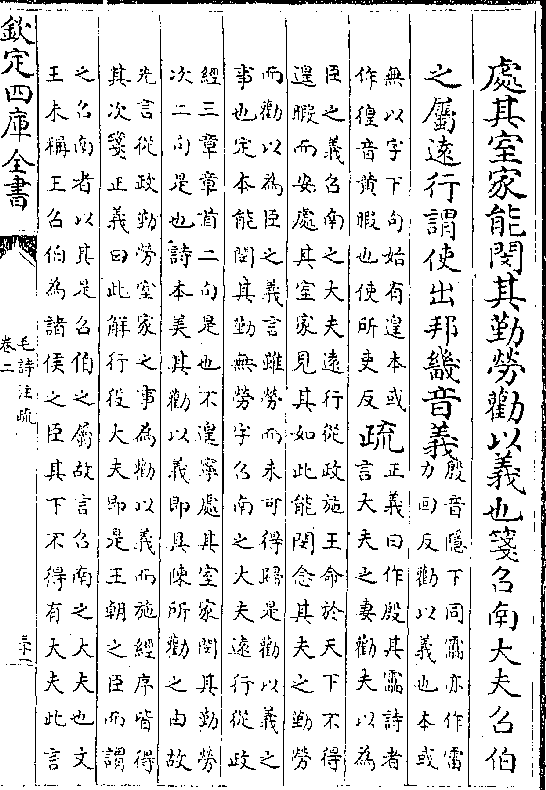 處其室家能閔其勤勞勸以義也箋召南大夫召伯
之屬遠行謂使出邦畿音義
殷音隱下同靁亦作雷
力回反勸以義也本或
無以字下句始有遑本或
作徨音黄暇也使所吏反
疏
正義曰作殷其靁詩者
言大夫之妻勸夫以為
臣之義召南之大夫遠行從政施王命於天下不得
遑暇而安處其室家見其如此能閔念其夫之勤勞
而勸以為臣之義言雖勞而未可得歸是勸以義之
事也定本能閔其勤無勞字召南之大夫遠行從政
經三章章首二句是也不遑寧處其室家閔其勤勞
次二句是也詩本美其勸以義即具陳所勸之由故
先言從政勤勞室家之事為勸以義而施經序皆得
其次箋正義曰此解行役大夫即是王朝之臣而謂
之召南者以其是召伯之屬故言召南之大夫也文
王未稱王召伯為諸侯之臣其下不得有大夫此言
欽定四庫全書
毛詩注疏
卷二